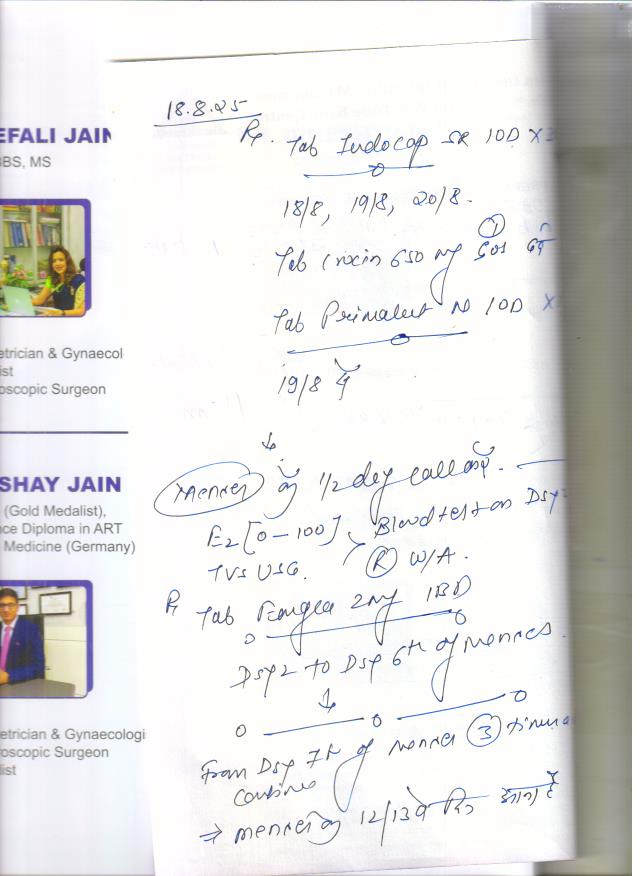 18.8.25
EFALI JAIN
BBS, MS
etrician & Gynaecol
ist
oscopic Surgeon
SHAY JAIN
(Gold Medalist),
ce Diploma in ART
Medicine (Germany)
etrician & Gynaecologi
roscopic Surgeon
list
Rx. Tab Indocap SR 1OD X 3
18/8, 19/8, 20/8.
Tab Crocin 650 mg ① SOS
Tab Primolut N 1OD X
19/8 से
↓
Menses के 1/2 day call करें.
E2 [0-100] Blood test on Day 2
TVS USG. Ⓡ W/A.
Rx Tab 2mg 1BD
Day 2 to Day 6th of menses.
↓
From Day 7th of menses ③ times a
continue
⇒ menses के 12/13वे दिन आना है